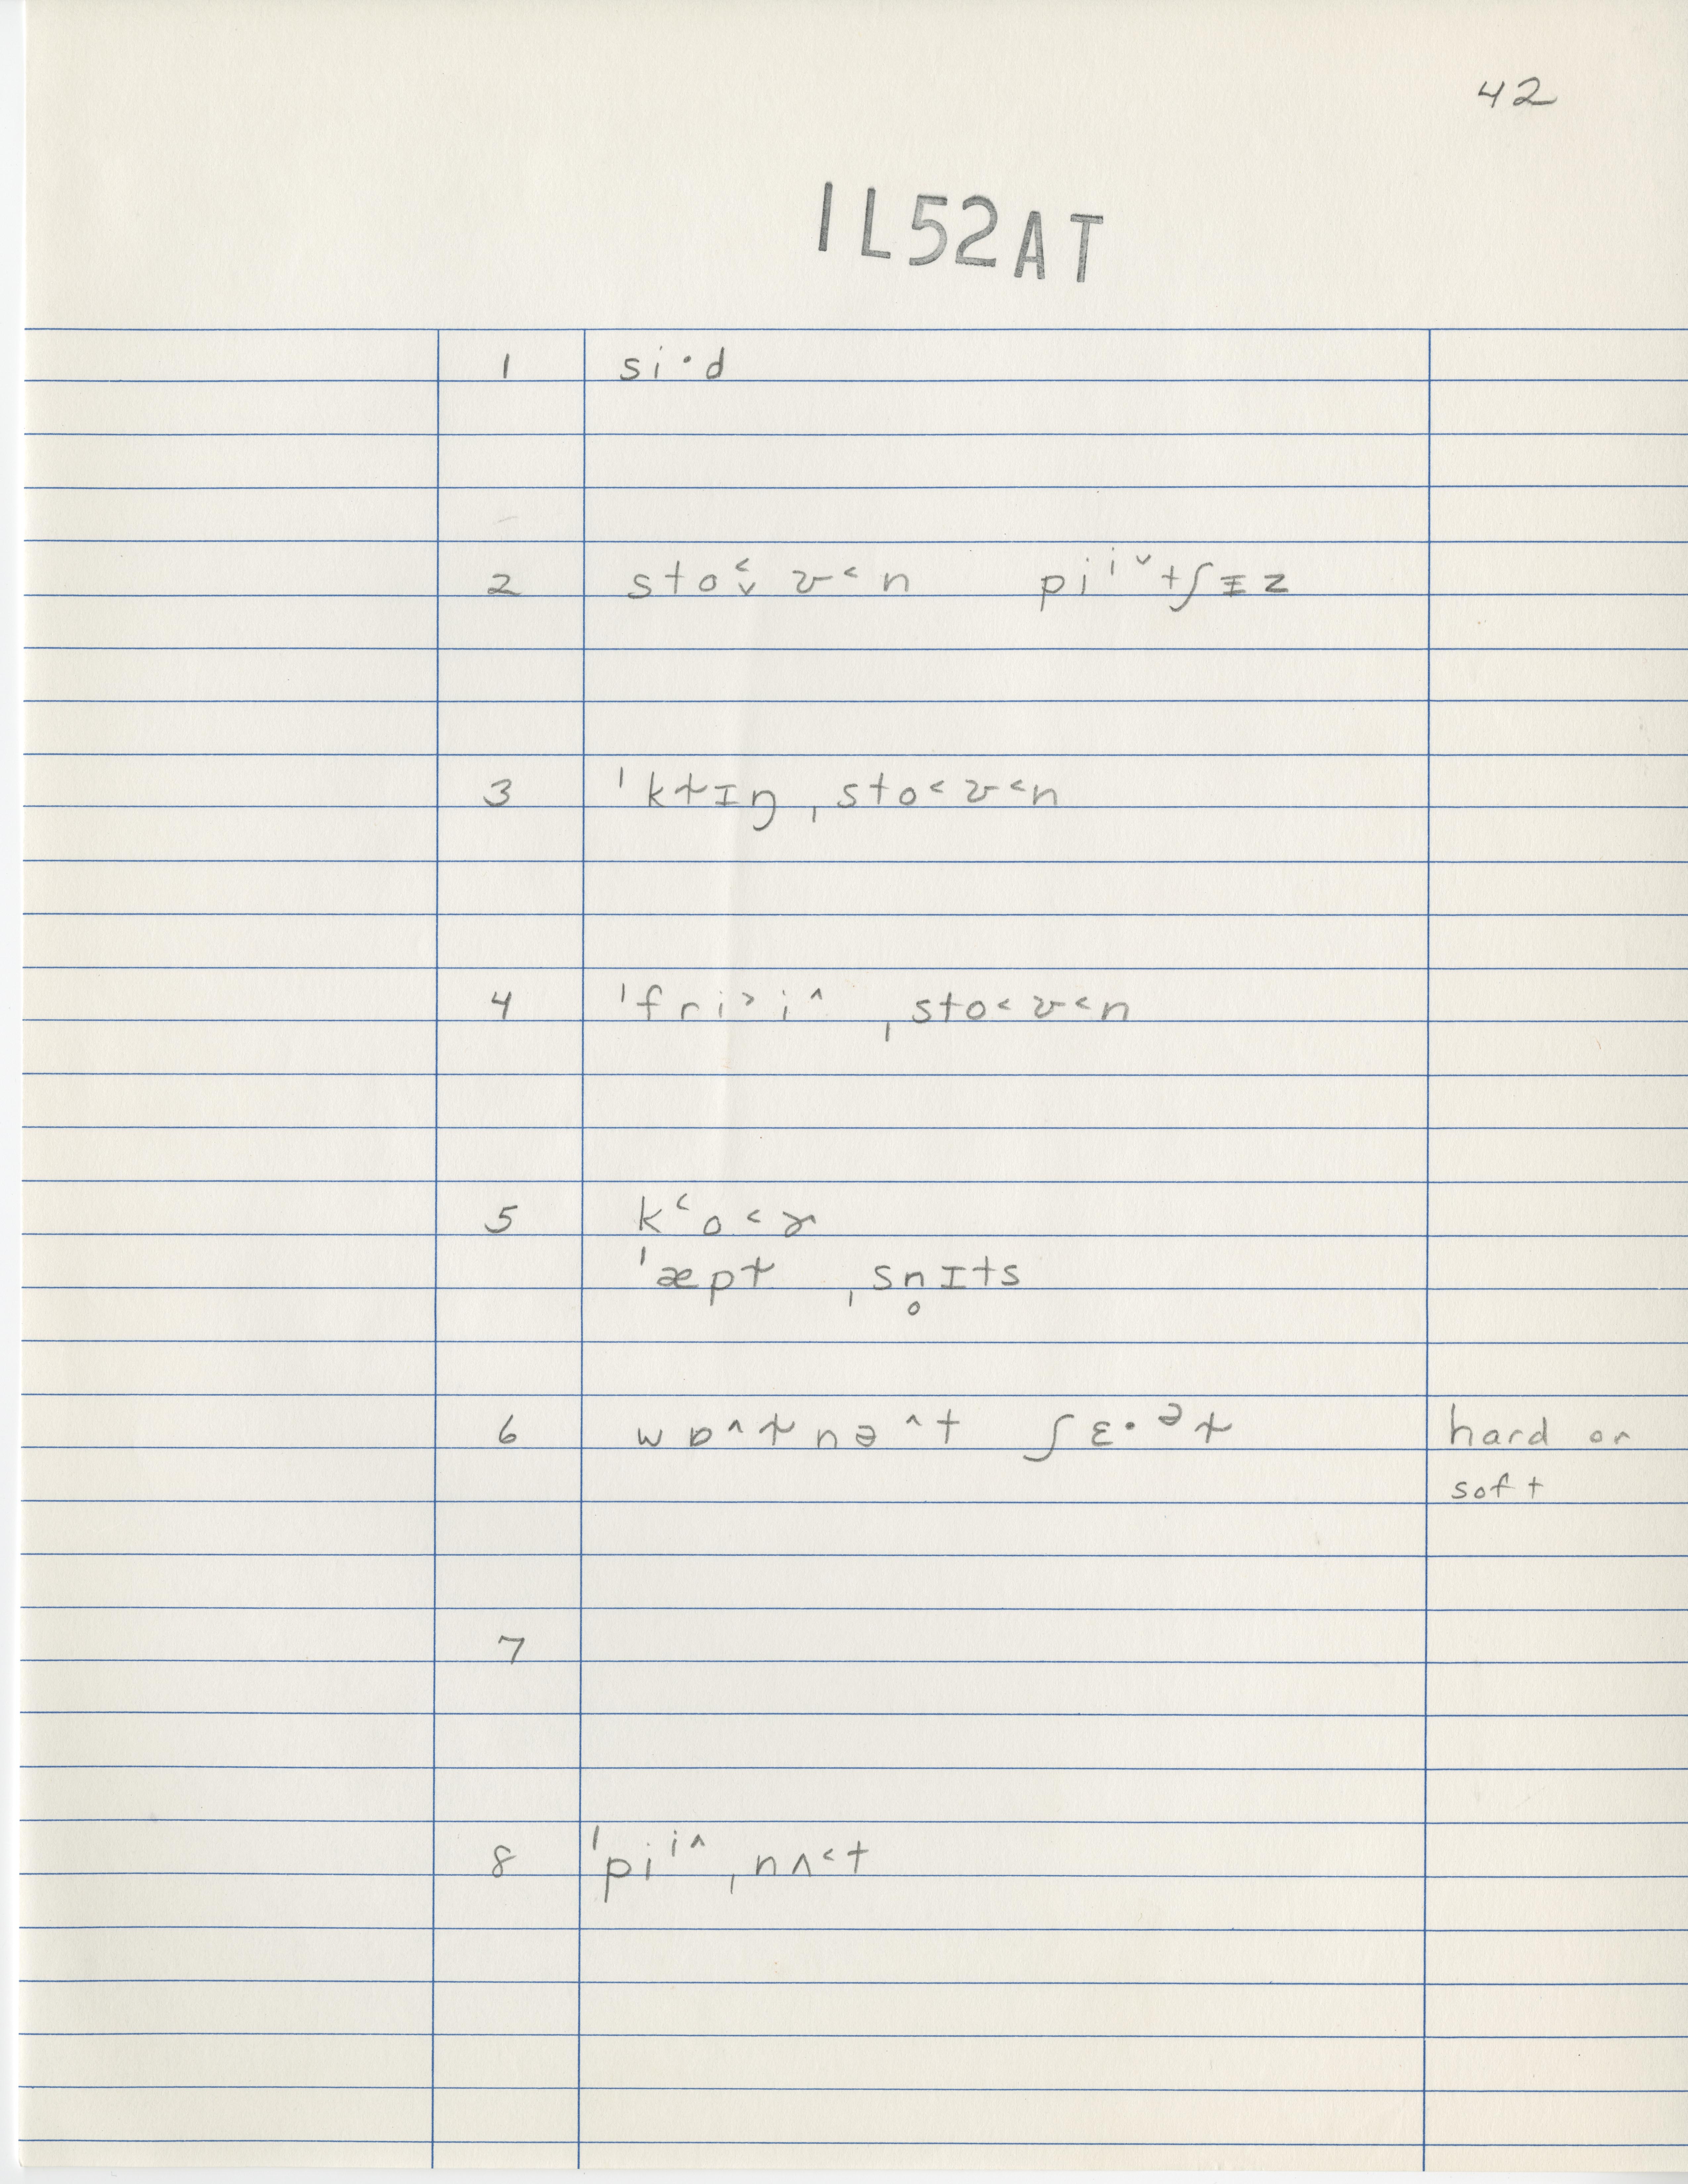 42
1L52AT
1 si·d
2 sto˂˅ ʊ˂n piⁱ˅tʃɪ̵z
3 ˈkɫɪŋ ˌsto˂ʊ˂n
4 ˈfri˃i˄ ˌsto˂ʊ˂n
5 kʻo˂ɚ
ˈæpɫ ˌsn̥ɪts
6 wɒ˄ɫnə˄t ʃɛ·ᵊɫ hard or
soft
7
8 ˈpiⁱ˄ ˌnʌ˂t